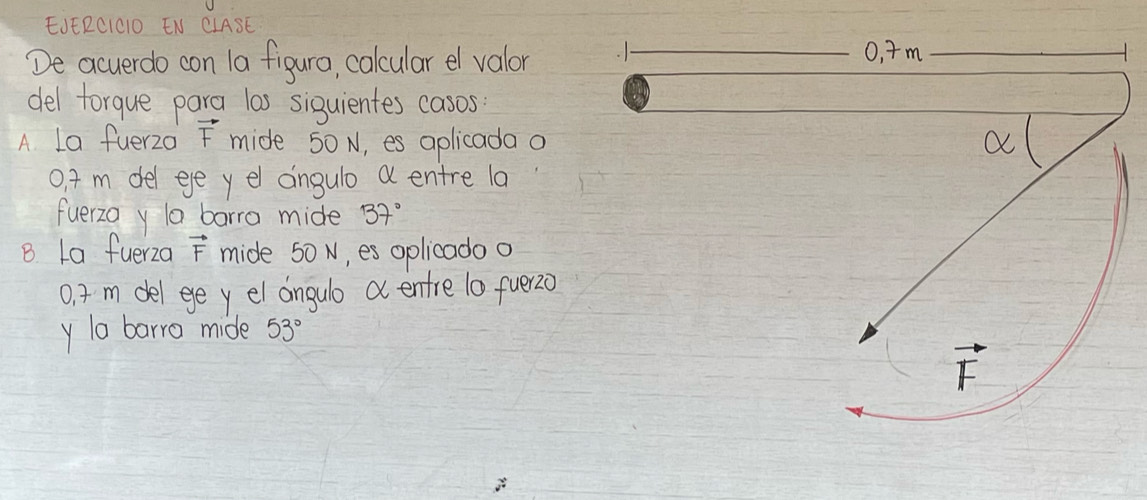 EJERCICIO EN CLASE
De acuerdo con la figura, calcular el valor
del torque para los siguientes casos:
A La fuerza F mide 50 N, es aplicada a
0,7 m del eje y el ángulo α entre la
fuerza y la barra mide 37°
B La fuerza F mide 50 N, es aplicado a
0,7 m del eje y el ángulo α entre la fuerza
y la barra mide 53°
0,7 m
α
F